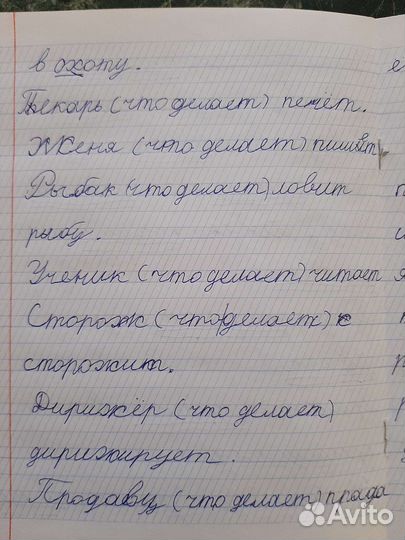 в охоту.
Пекарь (что делает) печёт.
Женя (что делает) пишет
Рыбак (что делает) ловит
рыбу.
Ученик (что делает) читает
Сторож (что делает) с
сторожит.
Дирижёр (что делает)
дирижирует.
Продавц (что делает) прода
Avito